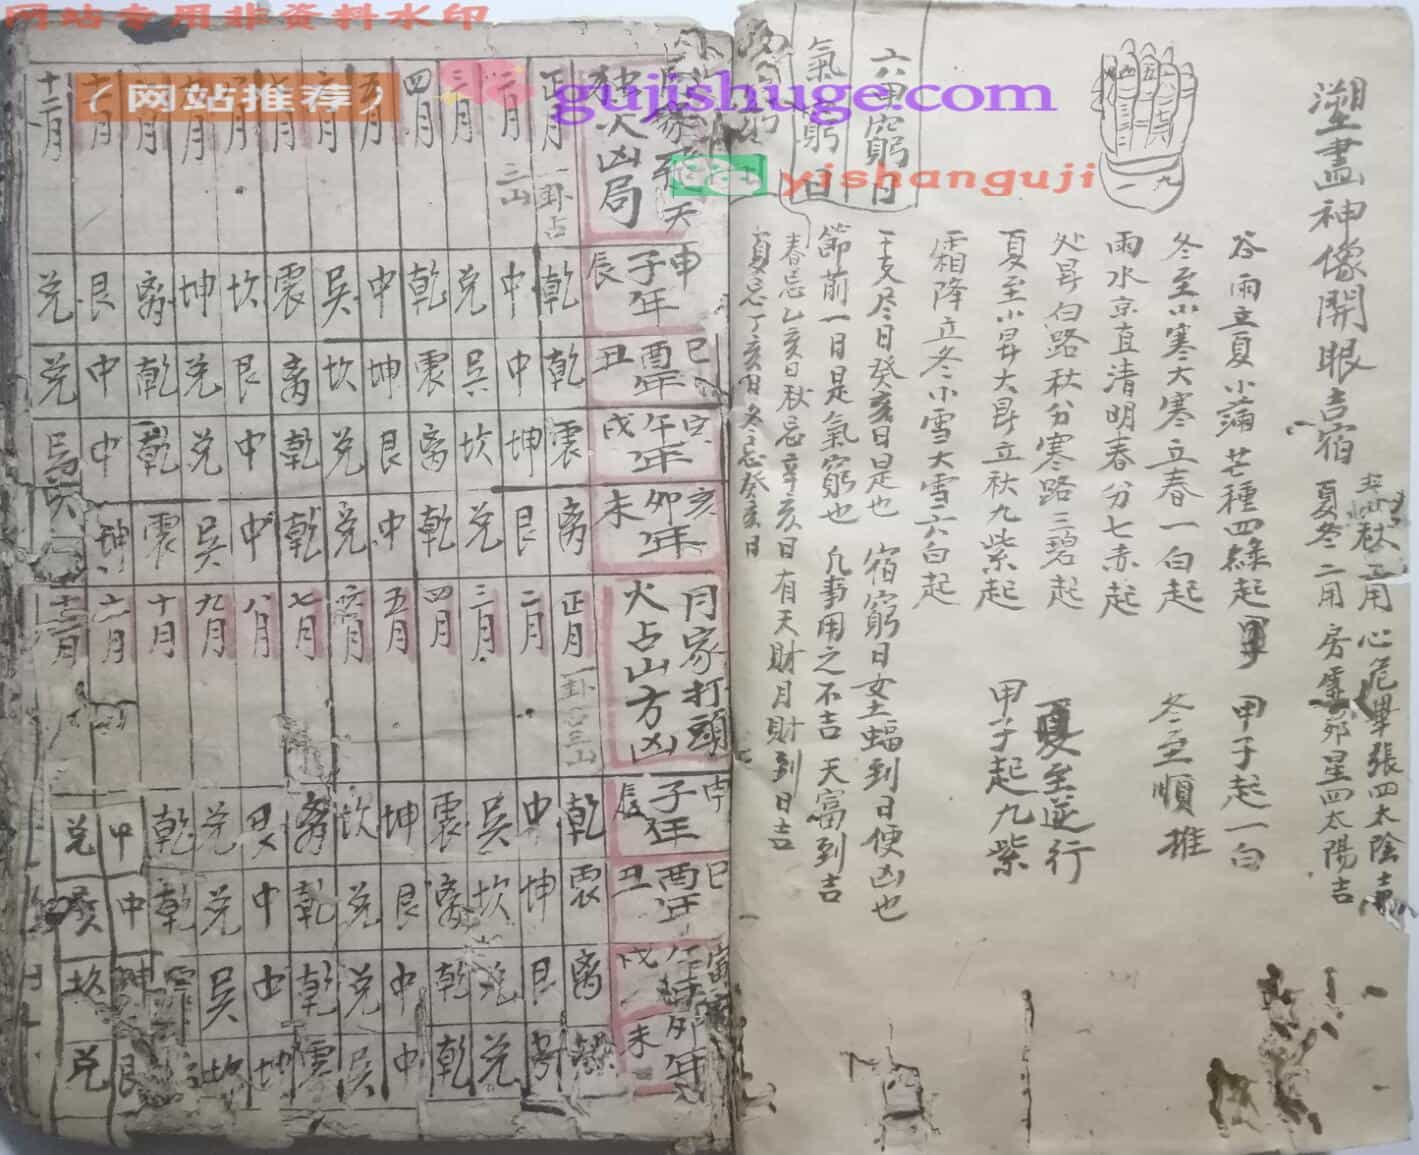 网站专用非资料水印
(网站推荐)
gujishuge.com
yishanguji
塑畫神像開眼吉宿
秋二用 心危畢張四太陰吉
夏冬二用 房虛昴星四太陽吉
谷雨立夏小滿芒種四綠起 甲子起一白
冬至小寒大寒立春一白起 冬至順推
雨水京直清明春分七赤起
处暑白路秋分寒路三碧起 夏至逆行
夏至小暑大暑立秋九紫起 甲子起九紫
霜降立冬小雪大雪六白起
六甲窮日
干支尽日癸亥日是也 宿窮日女土蝠到日便凶也
氣窮日
節前一日是氣窮也 凡事用之不吉 天富到吉
春忌乙亥日秋忌辛亥日 有天財月財到日吉
夏忌丁亥日冬忌癸亥日
独火凶局
申子辰年
巳酉丑年
寅午戌年
亥卯未年
正月 一卦占 乾 乾 震 离
二月 三山 中 中 坤 艮
三月 兑 吴 坎 兑
四月 乾 震 离 乾
五月 中 坤 艮 中
六月 吴 坎 兑 兑
七月 震 离 乾 乾
坎 艮 中 中
坤 兑 兑 吴
离 乾 乾 震
艮 中 中 坤
十二月 兑 兑
月家打頭火占山方凶
申子辰年
巳酉丑年
午戌
卯未年
正月 一卦占三山 乾 震 离
二月 中 坤 艮
三月 吴 坎 兑 兑
四月 震 离 乾 乾
五月 坤 艮 中 中
六月 坎 兑 兑 吴
七月 离 乾 乾 震
八月 艮 中 中 坤
九月 兑 兑 吴 坎
十月 乾 乾
十一月 中 中 坤 艮
十二月 兑 坎 兑